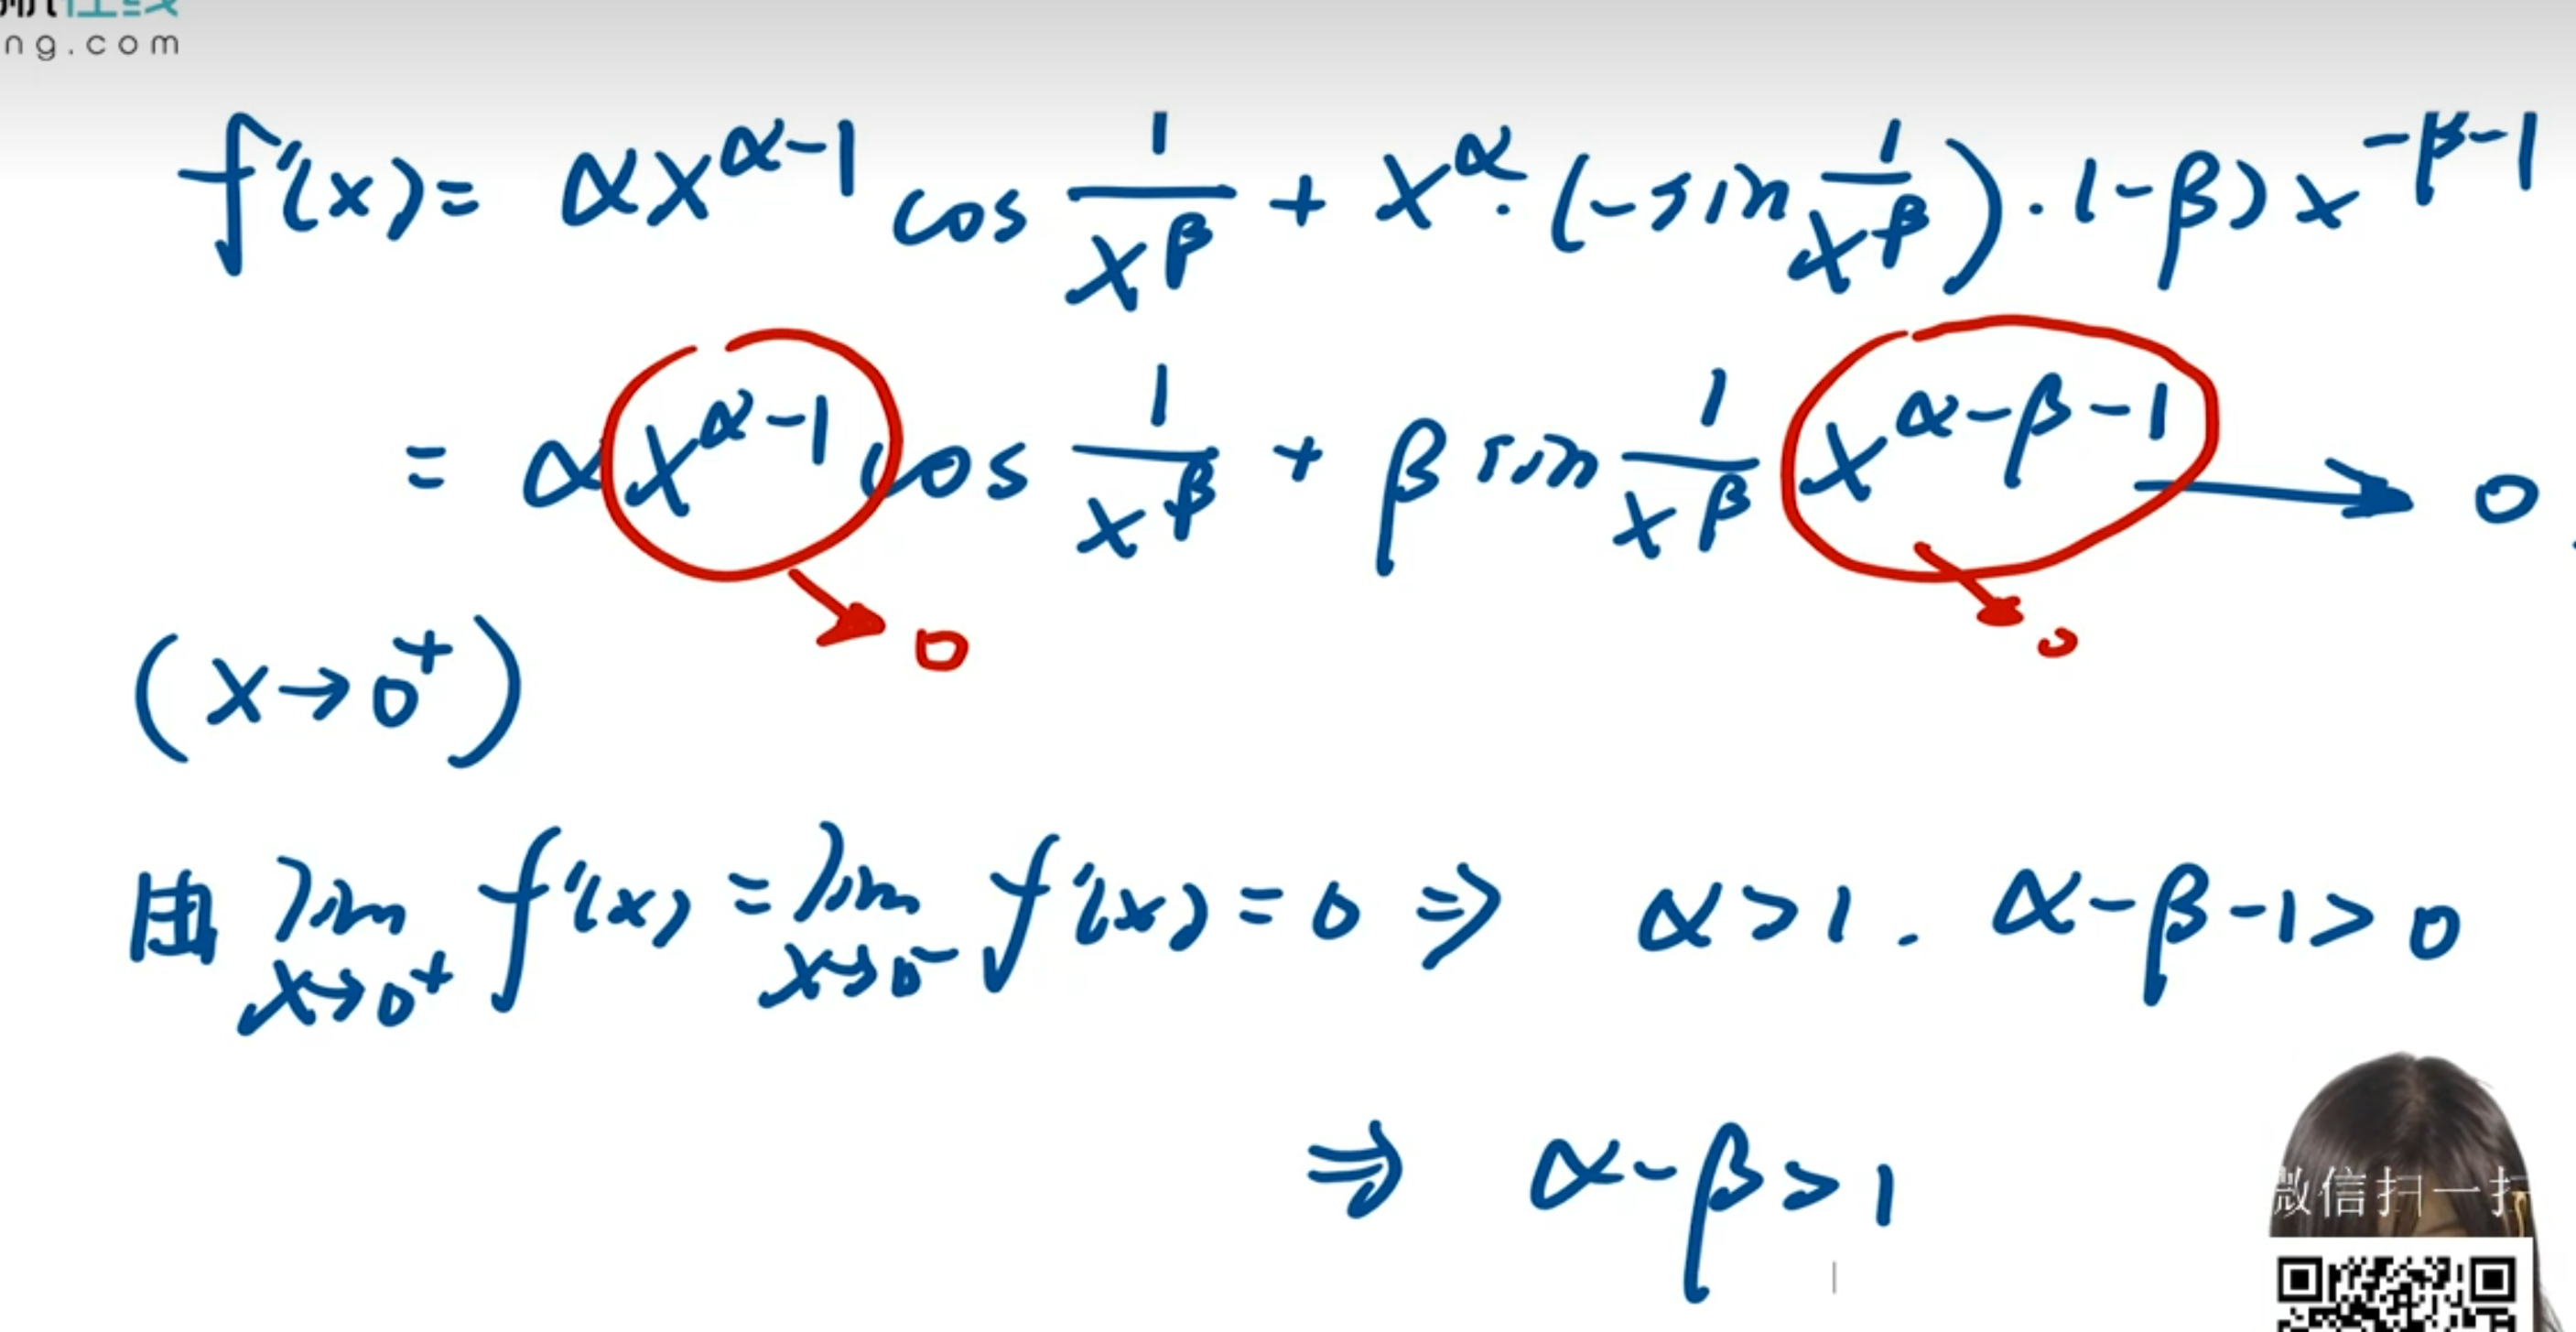 ng.com
f'(x) = αx^{α-1} cos 1/x^β + x^α · (-sin 1/x^β) · (-β) x^{-β-1}
= αx^{α-1} cos 1/x^β + β sin 1/x^β x^{α-β-1} → 0
→ 0 → 0
(x→0⁺)
由 lim_{x→0⁺} f'(x) = lim_{x→0⁻} f'(x) = 0 ⇒ α>1. α-β-1>0
⇒ α-β>1
微信扫一扫